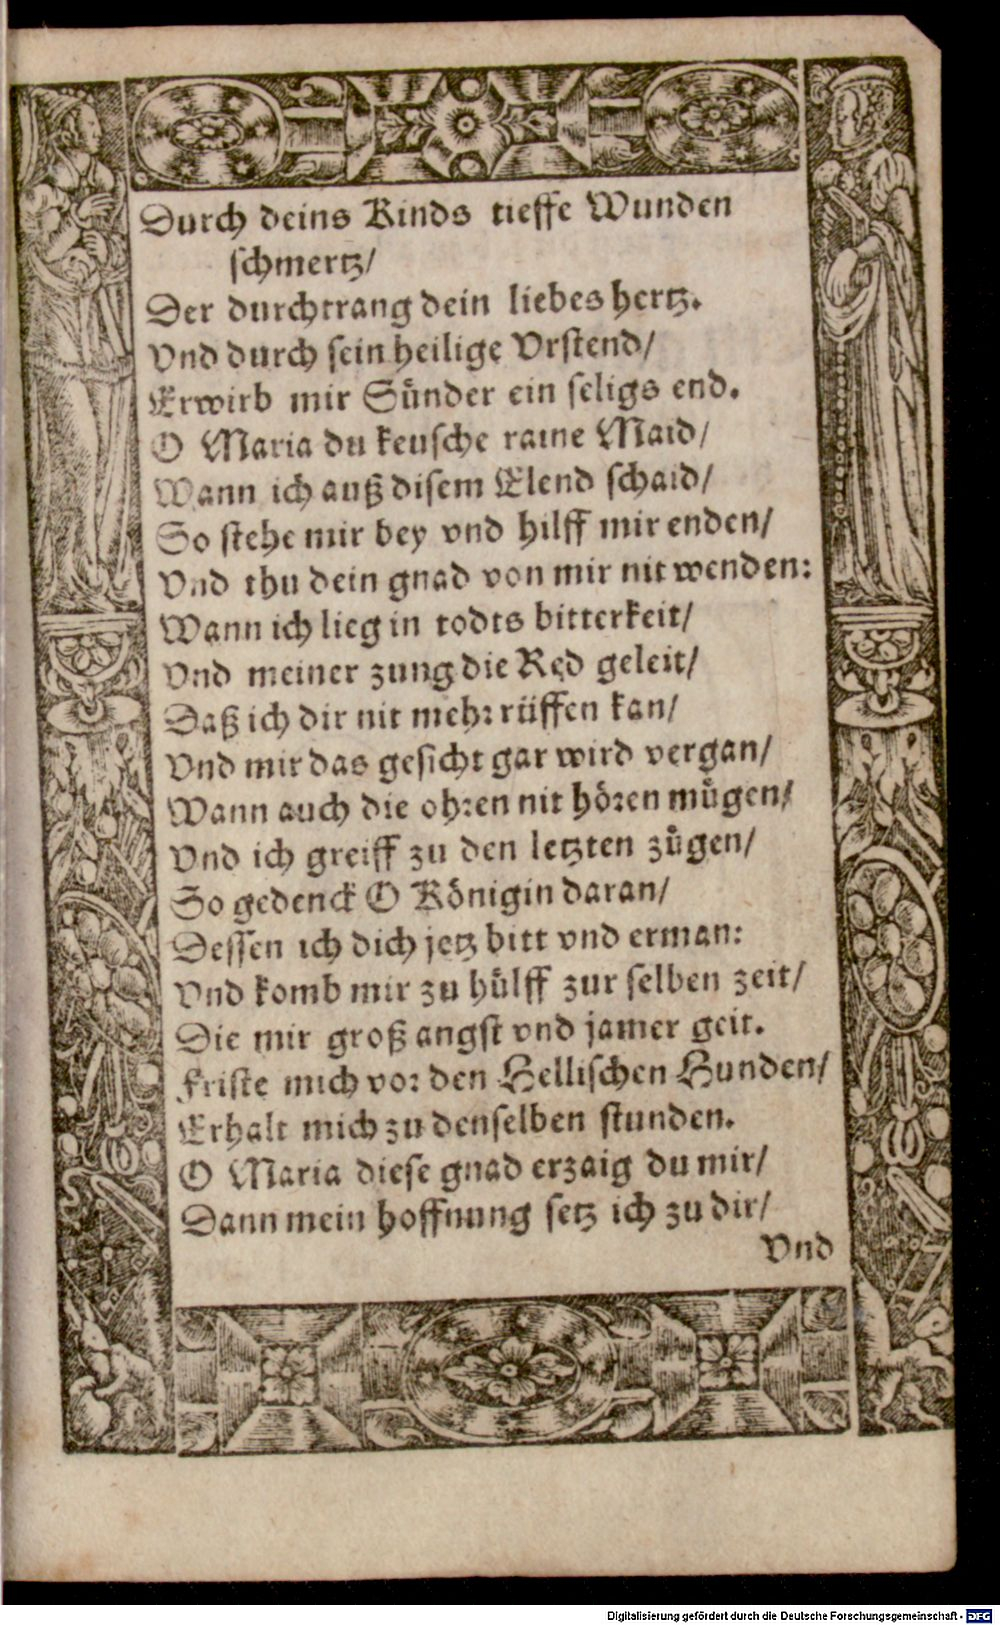 Durch deins Kinds tieffe Wunden
schmertz/
Der durchtrang dein liebes hertz.
Vnd durch sein heilige Vrstend/
Erwirb mir Sünder ein seligs end.
O Maria du keusche raine Maid/
Wann ich auß disem Elend schaid/
So stehe mir bey vnd hilff mir enden/
Vnd thu dein gnad von mir nit wenden:
Wann ich lieg in todts bitterkeit/
Vnd meiner zung die Red geleit/
Daß ich dir nit mehr rüffen kan/
Vnd mir das gesicht gar wird vergan/
Wann auch die ohren nit hören mügen/
Vnd ich greiff zu den letzten zügen/
So gedenck O Königin daran/
Dessen ich dich jetz bitt vnd erman:
Vnd komb mir zu hülff zur selben zeit/
Die mir groß angst vnd jamer geit.
Friste mich vor den Hellischen Hunden/
Erhalt mich zu denselben stunden.
O Maria diese gnad erzaig du mir/
Dann mein hoffnung setz ich zu dir/
Vnd
Digitalisierung gefördert durch die Deutsche Forschungsgemeinschaft - DFG